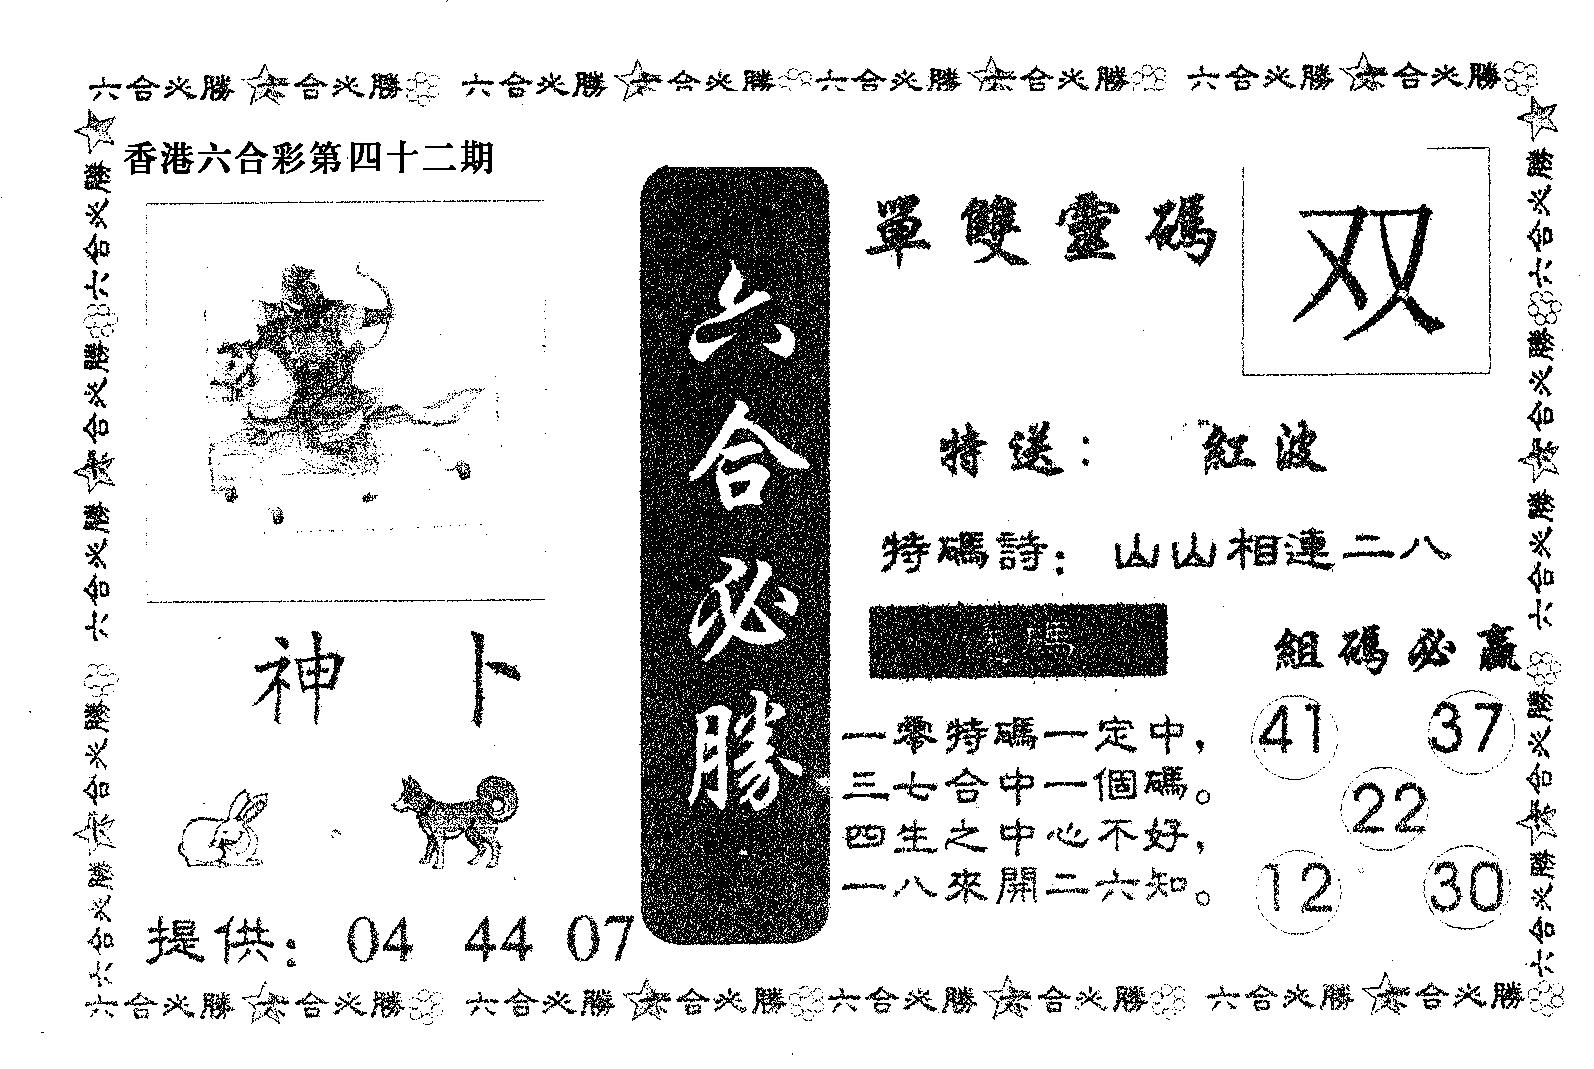 六合必勝 六合必勝 六合必勝 六合必勝 六合必勝 六合必勝 六合必勝 六合必勝
香港六合彩第四十二期
六合必勝
單雙靈碼
双
特送： 紅波
特碼詩：山山相連二八
組碼必贏
一零特碼一定中，
三七合中一個碼。
四生之中心不好，
一八來開二六知。
41 37
22
12 30
神 卜
提供：04 44 07
六合必勝 六合必勝 六合必勝 六合必勝
六合必勝 六合必勝 六合必勝 六合必勝
六合必勝 六合必勝 六合必勝 六合必勝 六合必勝 六合必勝 六合必勝 六合必勝